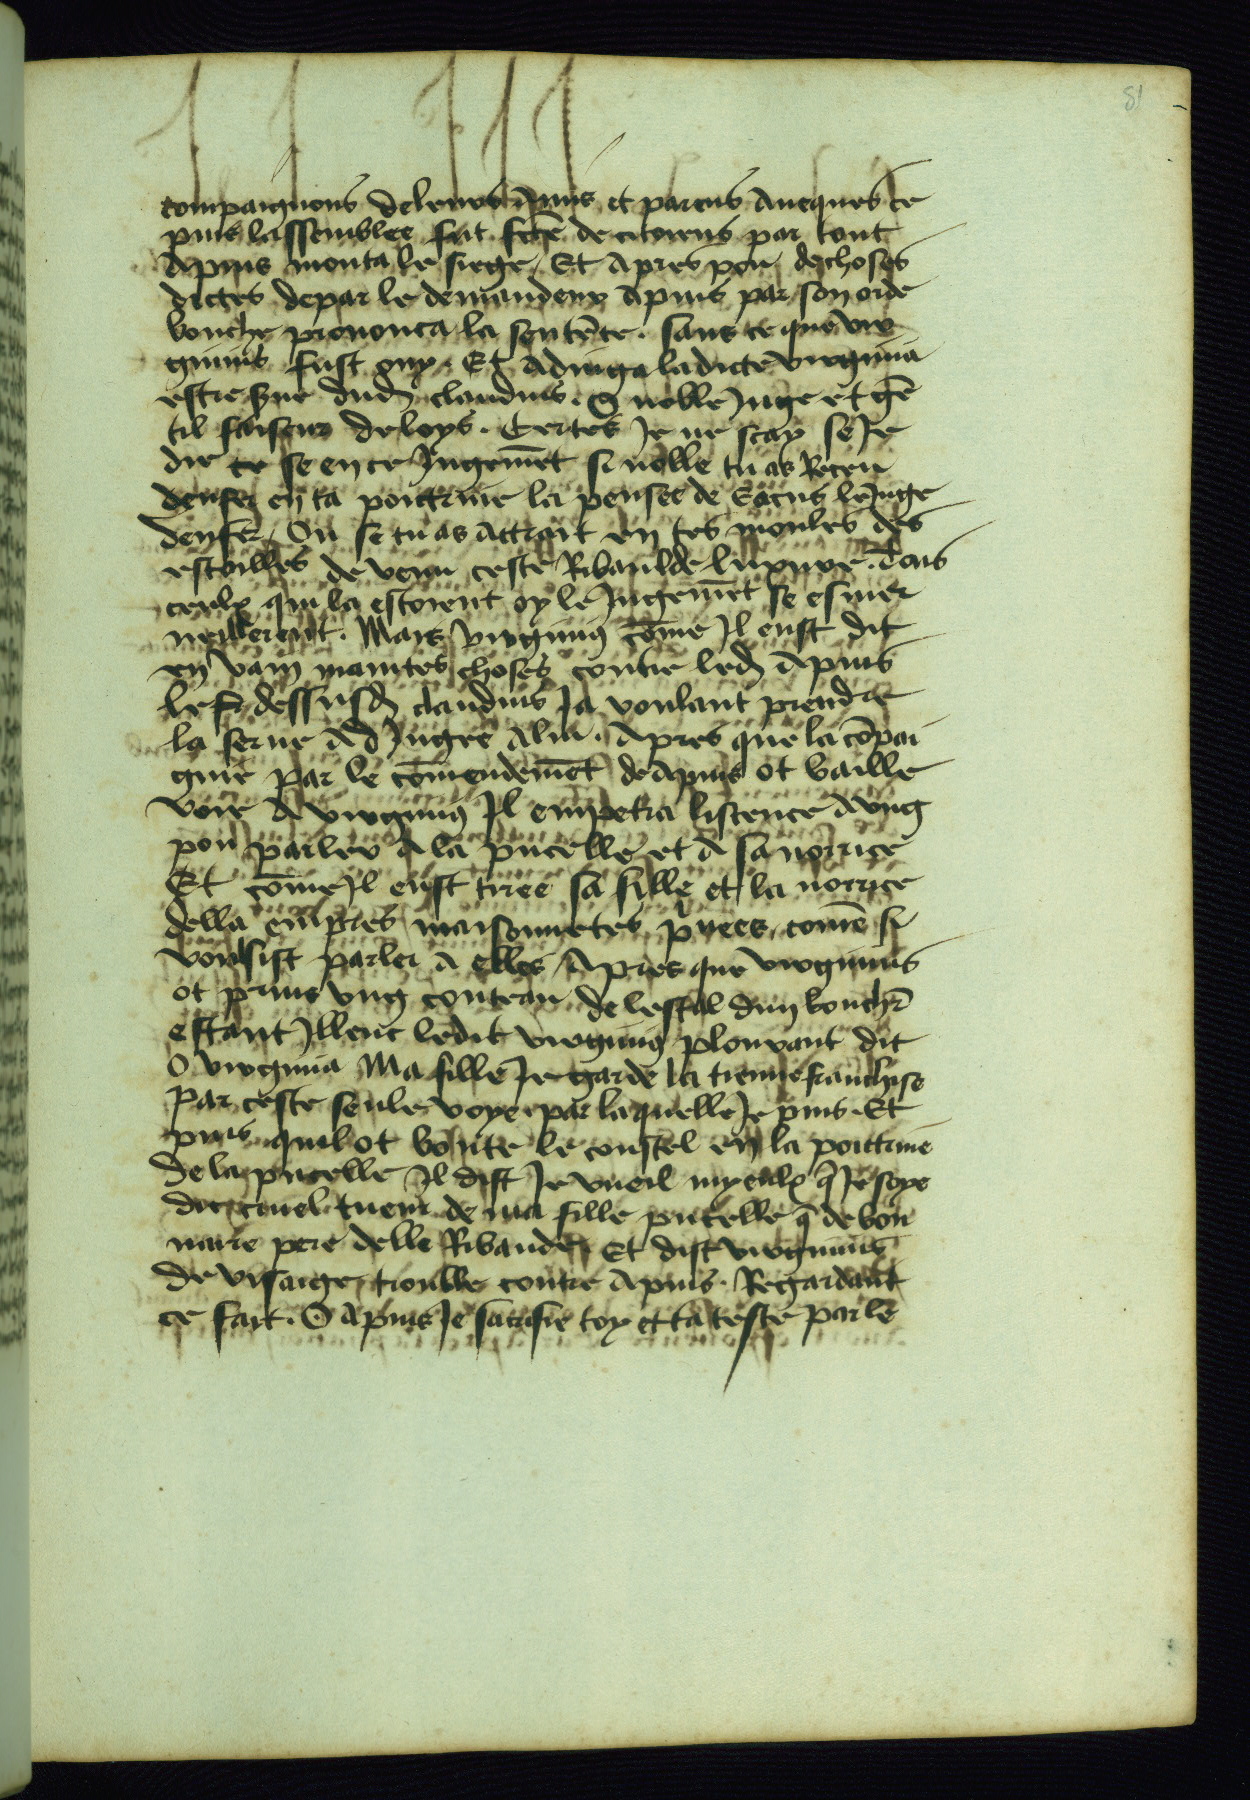 81
compaignons de leurs amis et parens avecques ce
puis lassemblee fut fcte de citoiens par tout
Apius monta le siege / Et apres pou de choses
dictes de par le demandeur Apius par son orde
bouche prononca la sentēce . sans ce que vir
ginius fust ouy . Et adjuga ladicte virginia
estre serve dud claudius . O noble Juge et gē
til faiseur de loys . Certes Je ne scay se Je
die ce se en ce Jugemēt si noble tu as Receu
denfer en ta poittrine la pensee de Eacus le Juge
denfer / Ou se tu as attrait en tes moules des
estoilles de venu ceste Ribaulde luxure . Tous
ceulx qui la estoient oy le Jugemēt se esmer
veillerent . Mais virginius cōme Jl eust dit
en vain maintes choses contre led Apius
le dessusd claudius Ja voulant prendre
la serve adJugee a lui . Apres que la cōpai
gnie par le cōmendemēt de Apius ot baille
voie a virginius Jl empetra liscence a ung
pou parler a la pucelle et a sa norrice
Et cōme Jl eust tiree sa fille et la norrice
della empres maisonnetes privees , comē sil
voulsist parler a elles / Apres que virginius
ot prins ung couteau de lestal dun bouchr
estant Jllenc ledit virginius plourant dit
O virginia Ma fille Je garde la tienne franchise
Par ceste seule voye par laquelle Je puis . Et
puis quil ot boute le coustel en la poittrine
De la pucelle Jl dist Je vueil myeulx q̄ Je soye
dit cruel tueur de ma fille pucelle q̄ de bon
naire pere delle Ribaude / Et dist virginius
De visaige trouble contre Apius . Regardant
ce fait . O Apius Je sacrifie toy et ta teste par le